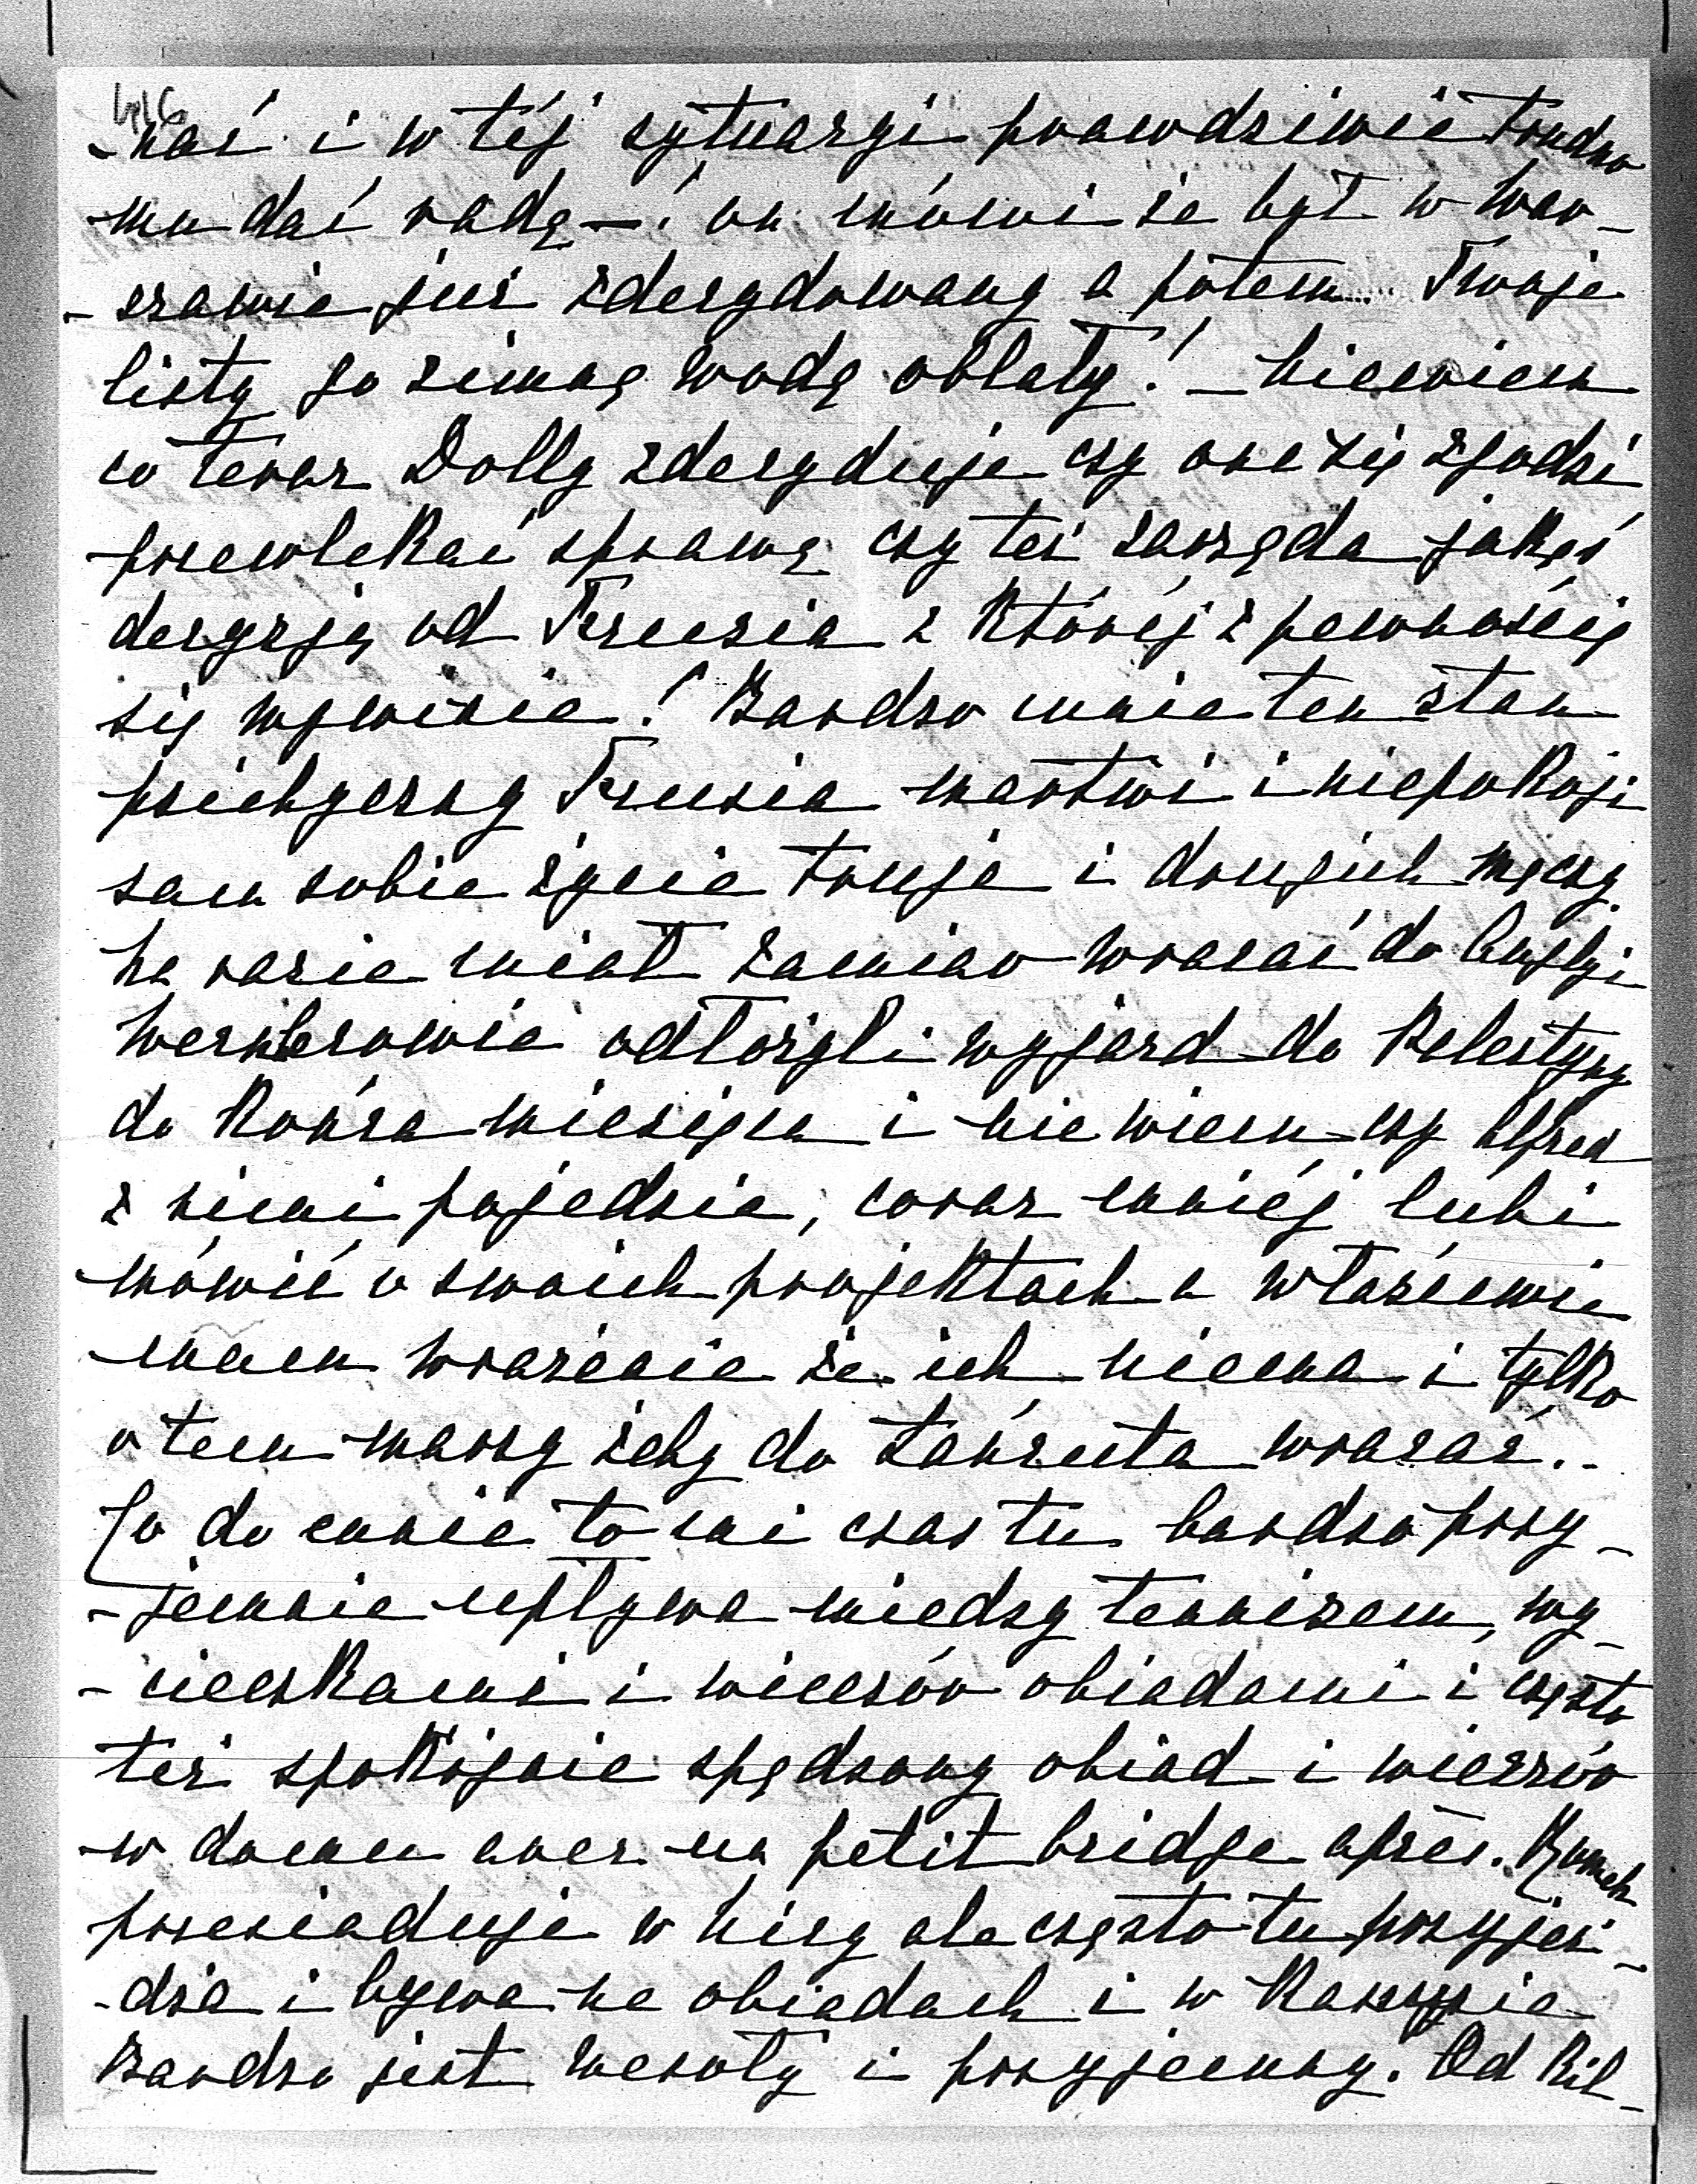 446
-kać i w téj sytuacyi prawdziwie trudno
mu dać radę — ! on mówi że był w War-
-szawie już zdecydowany a potem Twoje
listy go zimną wodą oblały! — niewiem
co teraz Dolly zdecyduje czy ona się zgodzi
przewlekać sprawę czy też zarząda jakąś
decyzję od Fruzia z któréj z pewnością
się wywinie! Bardzo mnie ten stan
psichyczny Fruzia martwi i niepokoji
sam sobie życie truje i drugich męczy
na razie miał zamiar wracać do Anglji
odłożyli wyjazd do Palestyny
do końca miesiąca i nie wiem czy Alfred
z niemi pojedzie, coraz mniéj lubi
mówić o swoich projektach a właściwie
mam wrażenie że ich niema i tylko
o tem marzy żeby do Łańcuta wracać..
Co do mnie to mi czas tu bardzo przy-
-jemnie upływa miedzy tennisem, wy-
-cieczkami i wieczór obiadami i często
też spokójnie spędzony obiad i wieczór
w domu avec un petit bridge après.
przesiaduje w Nicy ale często tu przyjeż-
-dża i bywa na obiadach i w Kasynie
Bardzo jest wesoły i przyjemny. Od Kil-